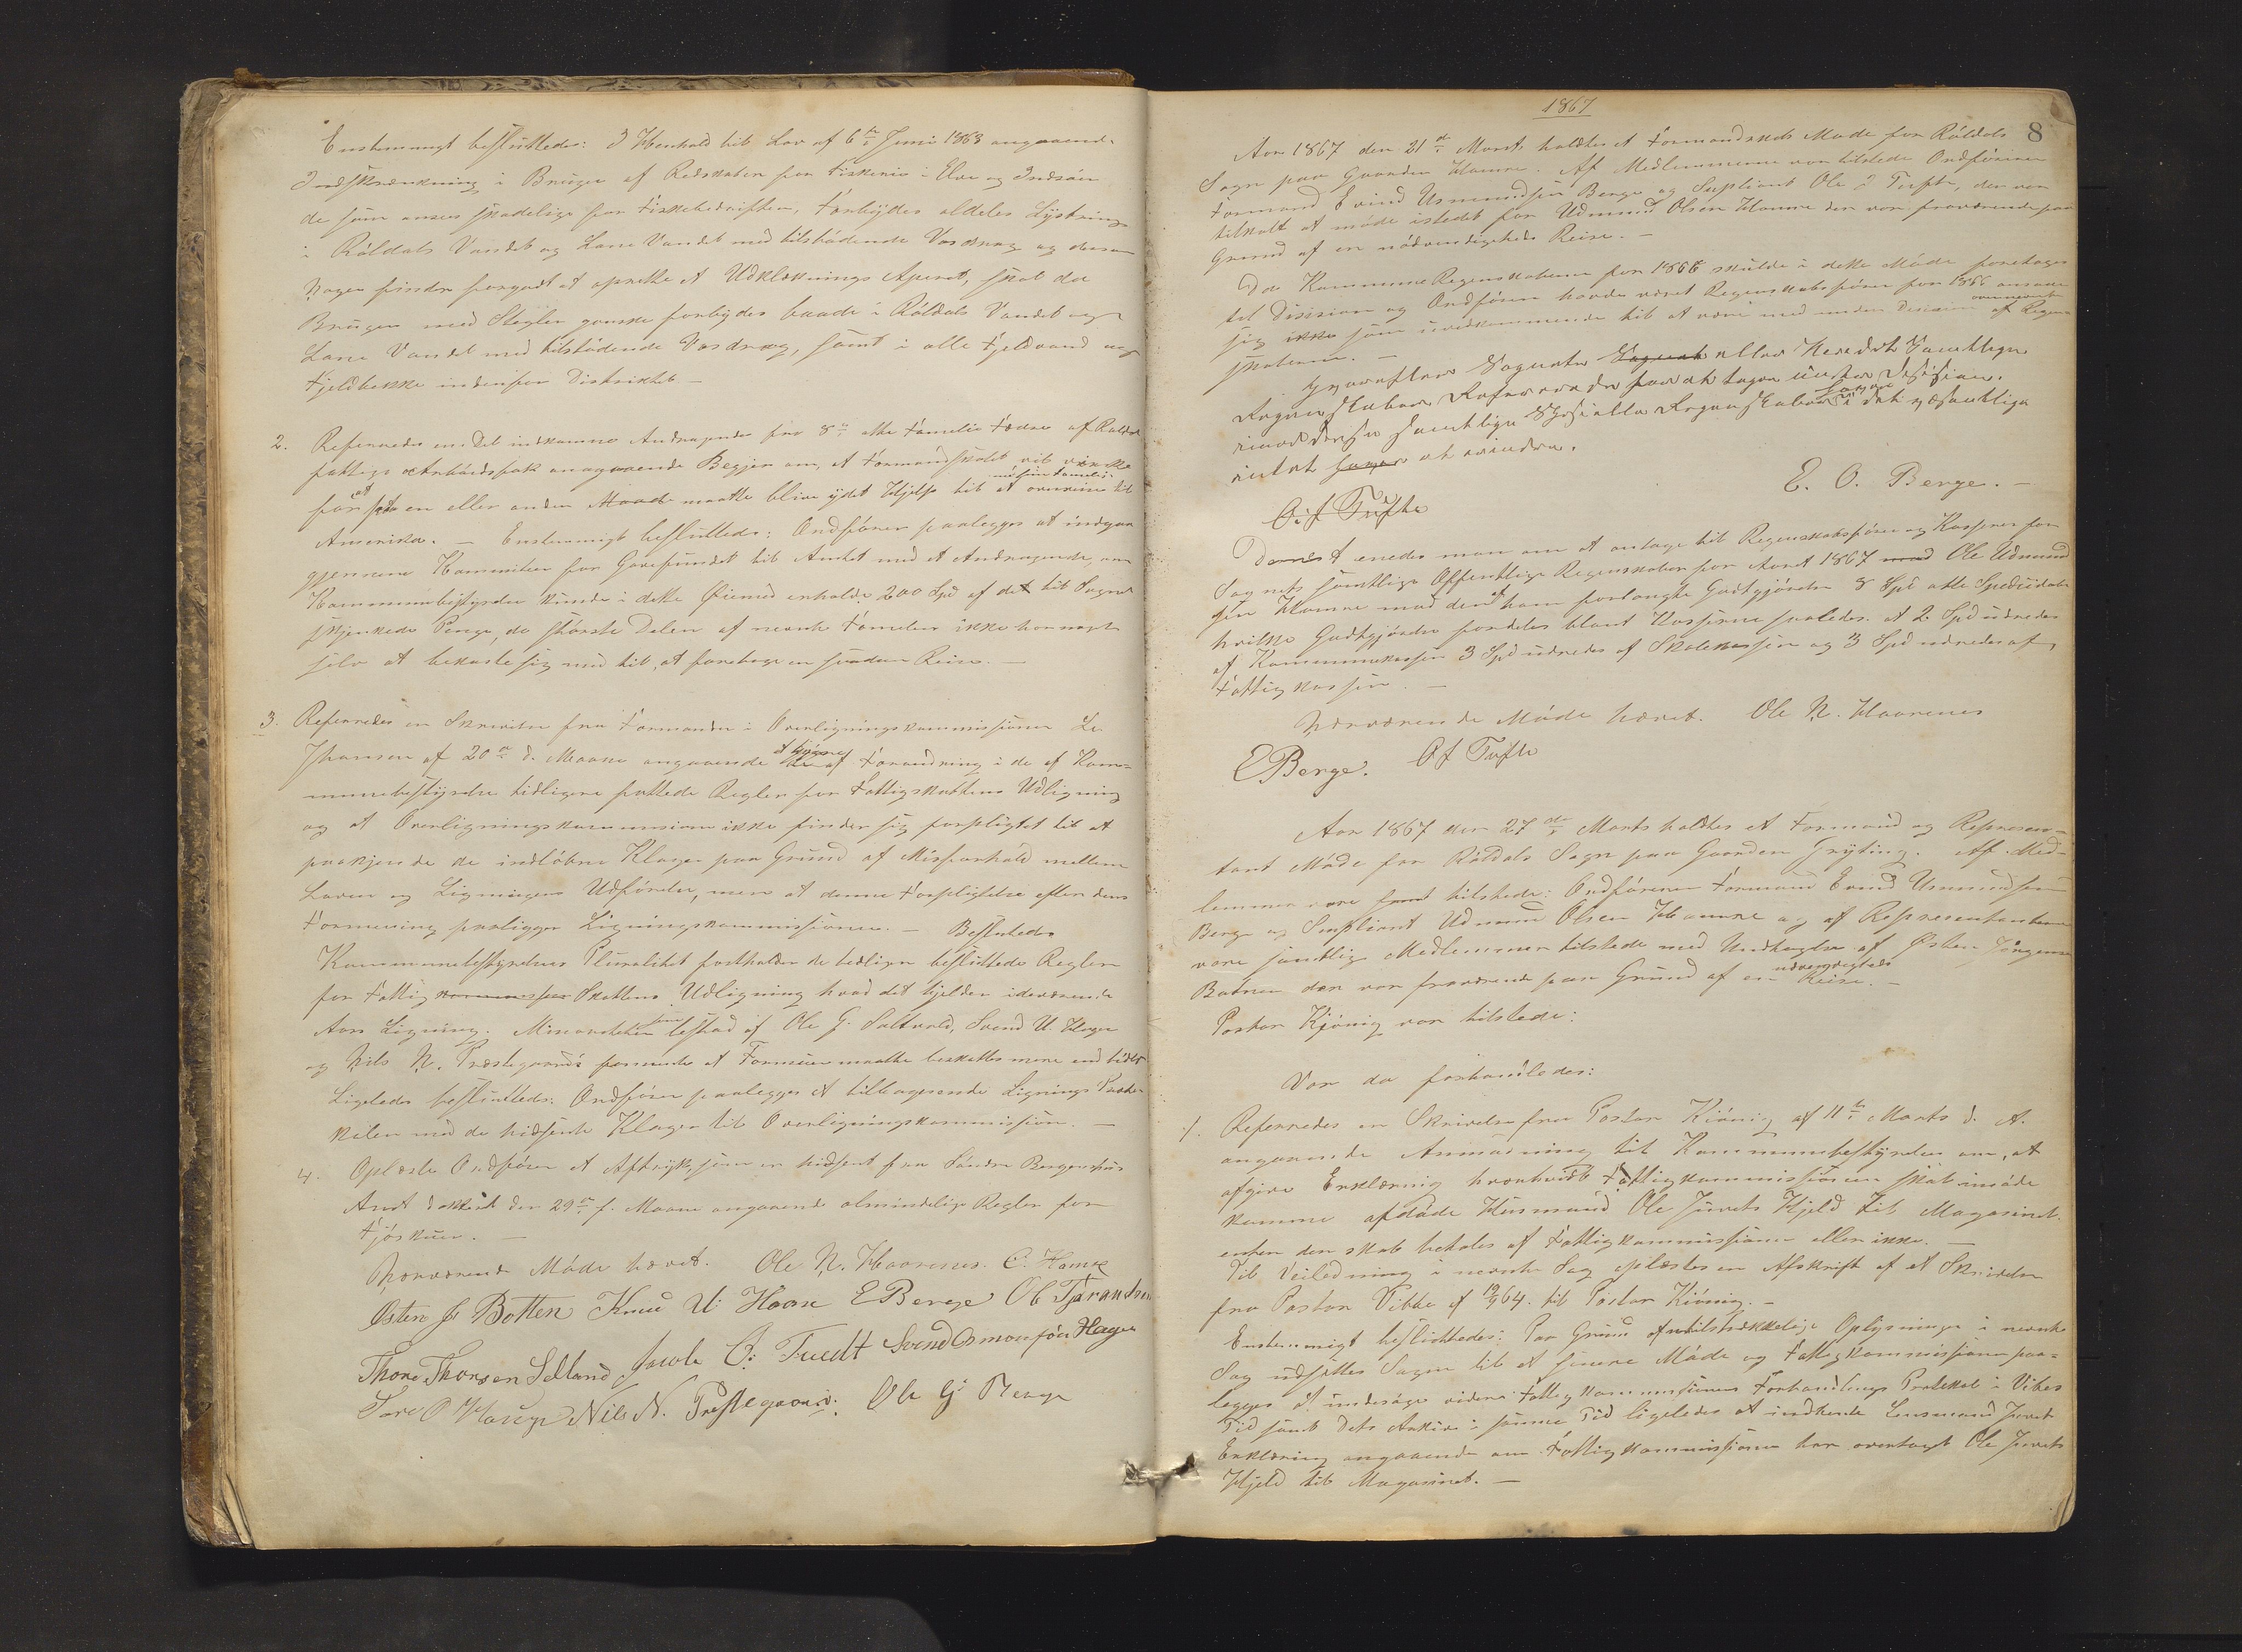 Enstemmigt besluttedes: I Henhold til Lov af 6te Juni 1863 angaaende
Indskrænkning i Brugen af Redskaber for Fiskeri i Elve og Indsøer
de som anses skadelige for Fiskebedriften, forbydes aldeles Lystring
i Røldals Vandet og Lone Vandet med tilstødende Vasdrag og dersom
Nogen finder forgodt at oprette et Udklæknings Aperat, skal da
Brugen med Stegler ganske forbydes baade i Røldals Vandet og
Lone Vandet med tilstødende Vasdrag, samt i alle Fjeldvand og
Fjeldbække indenfor Distriktet —
2. Refereredes en Del indkomne Andragender fra 8te otte Familie Fædre af Røldal
fattige Arbeidsfolk angaaende Begjær om, at Formandskabet vil virke
for at paa en eller anden Maade maatte blive ydet Hjelp til at med sin Familie overreise til
Amerika. — Enstemmigt besluttedes: Ordfører paalegges at indgaa
gjennem Kommiteen for Gavefundet til Amtet med et Andragende, om
Kommunebestyrelse kunde i dette Øiemed erholde 200 Spd af det til Sognet
skjenkede Penge, da største Delen af nevnte Familier ikke har noget
selv at bekoste sig med til, at foretage en saadan Reise. —
3. Refereredes en Skrivelse fra Formanden i Overligningskommissionen
Johansen af 20de d. Maane angaaende at gjøre Forandring i de af Kom-
munebestyrelse tidligere fattede Regler for Fattigskattens Udligning
og at Overligningskommissionen ikke finder sig forpligtet til at
paakjende de indløbne Klager paa Grund af Misforhold mellem
Loven og Ligningens Udførelse, men at denne Forpligtelse efter dens
Formening paaligger Ligningskommissionen. — Besluttedes
Kommunebestyrelsens Pluralitet fastholder de tidligere besluttede Regler
for Fattig Skattens Udligning hvad det gjelder ideværende
Aars Ligning. Minoriteten som bestod af Ole G. Saltvold, Svend U. Hagen
og Nils N. Prestegaard formente at Formuen maatte beskattes mere end tidl.
Ligeledes besluttedes: Ordfører paalegges at tilbagesende Lignings Proto-
kolen med de hidsendte Klager til Overligningskommission. —
4. Oplæste Ordfører et Aftryk som er hidsent fra Søndre Bergenhus
Amt dateret den 29de f. Maane angaaende almindelige Regler for
Fjøskuer. —
Nærværende Møde hævet. Ole N. Haarenes. E. Hamre
Østen J. Botten Knud U. Haare E Berge Ol Tjørandsen
Thore Thorsen Selland Jacob O: Tuedt Svend Osmonsøn Hagen
Tore O Hauge Nils N. Prestegaard. Ole G Berge
1867
8
Aar 1867 den 21de Marts holdtes et Formandskabs Møde for Røldals
Sogn paa Gaarden Hamre. Af Medlemmerne var tilstede Ordføreren
Formand Evind Usmundsen Berge og Supliant Ole J Tufte, der var
tilkalt at møde istedet for Udmund Olsen Hamre der var fraværende paa
Grund af en nødvendigheds Reise. —
Da Kommune Regenskaberne for 1866 skulde i dette Møde foretages
til Disision og Ordføren havde været Regenskabsfører for 1866 ansaa
sig ikke som uvedkommende til at være med under Disision ovennevnte af Regen-
skaberne. —
Hvorefter Sognets eller Heredets Samtlige
Regnskaber Refereredes for at tages under Desision.
imod disse samtlige Spesielle Regenskaber i det væsentlige
intet at erindre.
E. O. Berge. —
O. J Tufte
Dernest enedes man om at antage til Regenskabsfører og Kasserer for
Sognets samtlige Offentlige Regenskaber for Aaret 1867 Ole Udmund
sen Hamre mod den af ham forlangte Godtgjørelse 8 Spd otte Speciedaler
hvilke Godtgjørelse fordeles blant Kasserne saaledes. at 2 Spd udredes
af Kommunekassen 3 Spd udredes af Skolekassen og 3 Spd udredes af
Fattigkassen. —
Nærværende Møde hævet. Ole N. Haarenes
E Berge. O J Tufte
Aar 1867 den 27de Marts holdtes et Formand og Represen-
tant Møde for Røldals Sogn paa Gaarden Gryting. Af Med-
lemmer vare tilstede: Ordføreren Formand Evind Usmundsen
Berge og Supliant Udmund Olsen Hamre og af Representanterne
vare samtlige Medlemmer tilstede med Undtagelse af Østen Jørgensen
Botnen der var fraværende paa Grund af en nødvendigheds Reise. —
Pastor Kjønig var tilstede:
Var da forhandledes:
1. Refereredes en Skrivelse fra Pastor Kiønig af 11te Marts d. A.
angaaende Anmodning til Kommunebestyrelsen om, at
afgive Erklæring hvorhvidt Fattigkommissionen skal imøde
komme afdøde Husmand Ole Juvets Gjeld til Magasinet
enten den skal betales af Fattigkommissionen eller ikke. —
Til Veiledning i nevnte Sag oplæstes en Afskrift af et Skrivelse
fra Pastor Vibbe af 19/9 64. til Pastor Kiønig. —
Enstemmigt besluttedes: Paa Grund af utilstrækkelige Oplysninger i nevnte
Sag udsettes Sagen til et senere Møde og Fattigkommissionen paa-
legges at undersøge videre Fattigkommissionens Forhandlings Protokol i Vibes
Tid samt dets Arkiv i samme Tid ligeledes at indhente Lensmand Juvets
Erklæring angaaende om Fattigkommissionen har overtaget Ole Juvets
Gjeld til Magasinet. —